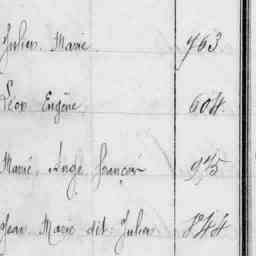 Julien Marie 763
Léon Eugène 604
Marie Ange François 975
Jean Marie dit Julien 844